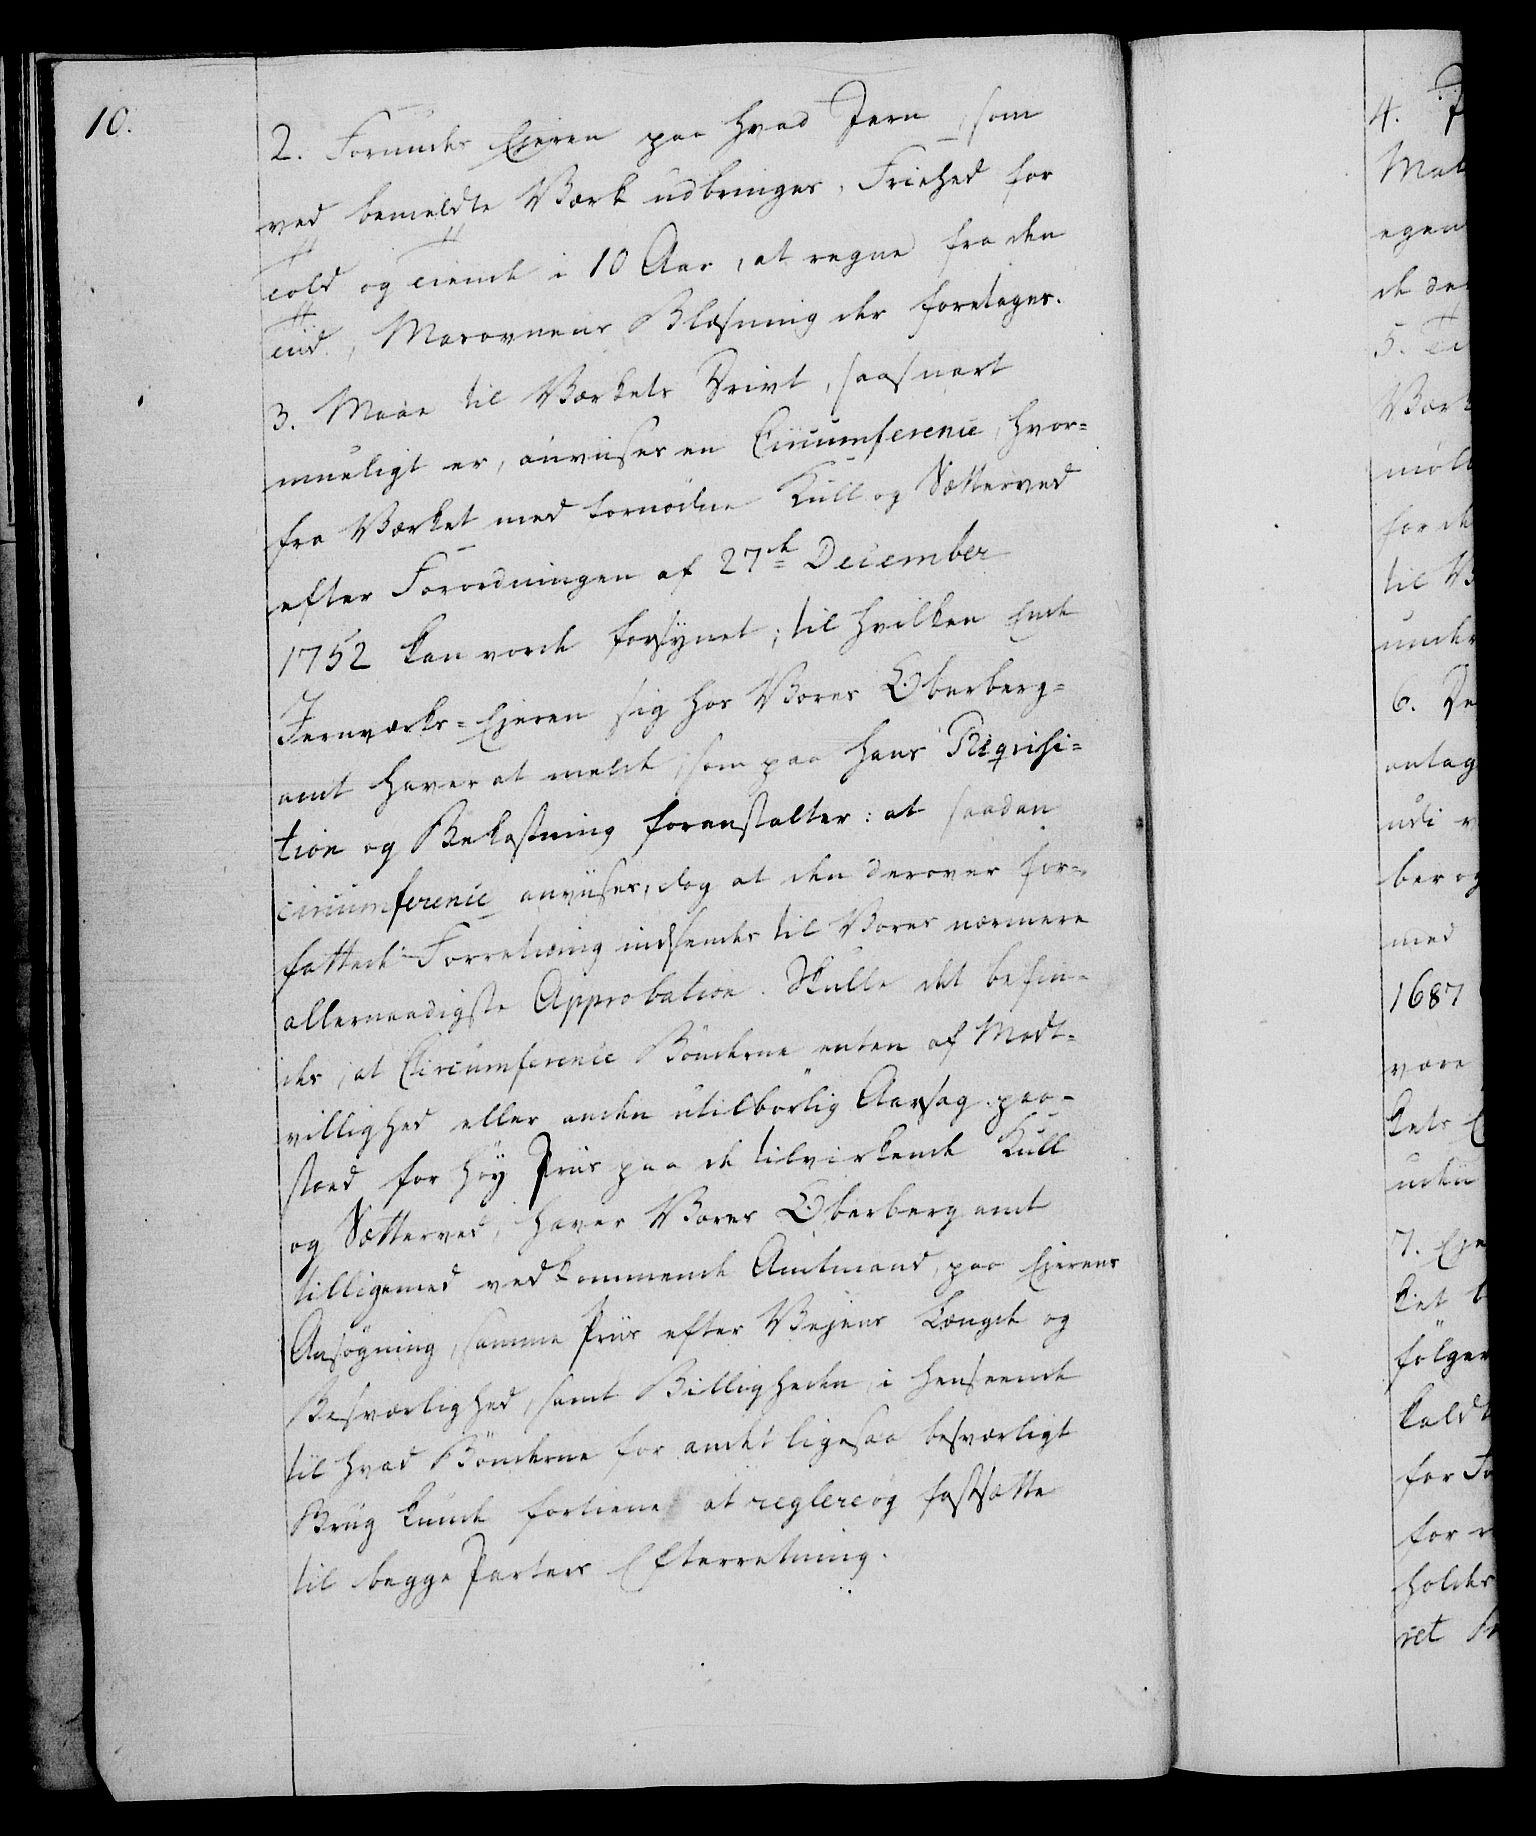 10.
2. Forundes Ejeren paa hvad Jern, som
ved bemeldte Værk udbringes, Friehed for
Told og Tiende i 10 Aar, at regne fra den
Tiid, Masovnens Blæsning der foretages.
3. Maae til Værkets Drivt, saasnart
mueligt er, anviises en Circumference, hvor-
fra Værket med fornødne Kull og Sætterved
efter Forordningen af 27de December
1752 kan vorde forsynet; til hvilken Ende
Jernværks-Ejeren sig hos Vores Oberberg-
amt haver at melde, som paa hans Reqvisi-
tion og Bekostning foranstalter: at saadan
circumference anviises, dog at den derover for-
fattede Forretning indsendes til Vores nærmere
allernaadigste Approbation. Skulle det befin-
des, at Circumference Bönderne enten af Modt-
villighed eller anden utilbörlig Aarsag paa-
stoed for höy Priis paa de tilvirkende Kull
og Sætterved, haver Vores Oberbergamt
tilligemed vedkommende Amtmand, paa Ejerens
Ansögning, samme Priis efter Vejens Længde og
Besværlighed, samt Billigheden, i henseende
til hvad Bönderne for andet ligesaa besværligt
Brug kunde fortiene at reglere og fastsætte
til begge Parters Efterretning.
4.
egen
5.
Værk
for de
til
6.
antag
udi
ber og
med
1687
være
kets
uden
7. Eje
ket
følger
kaldt
for
for
holdes
ret